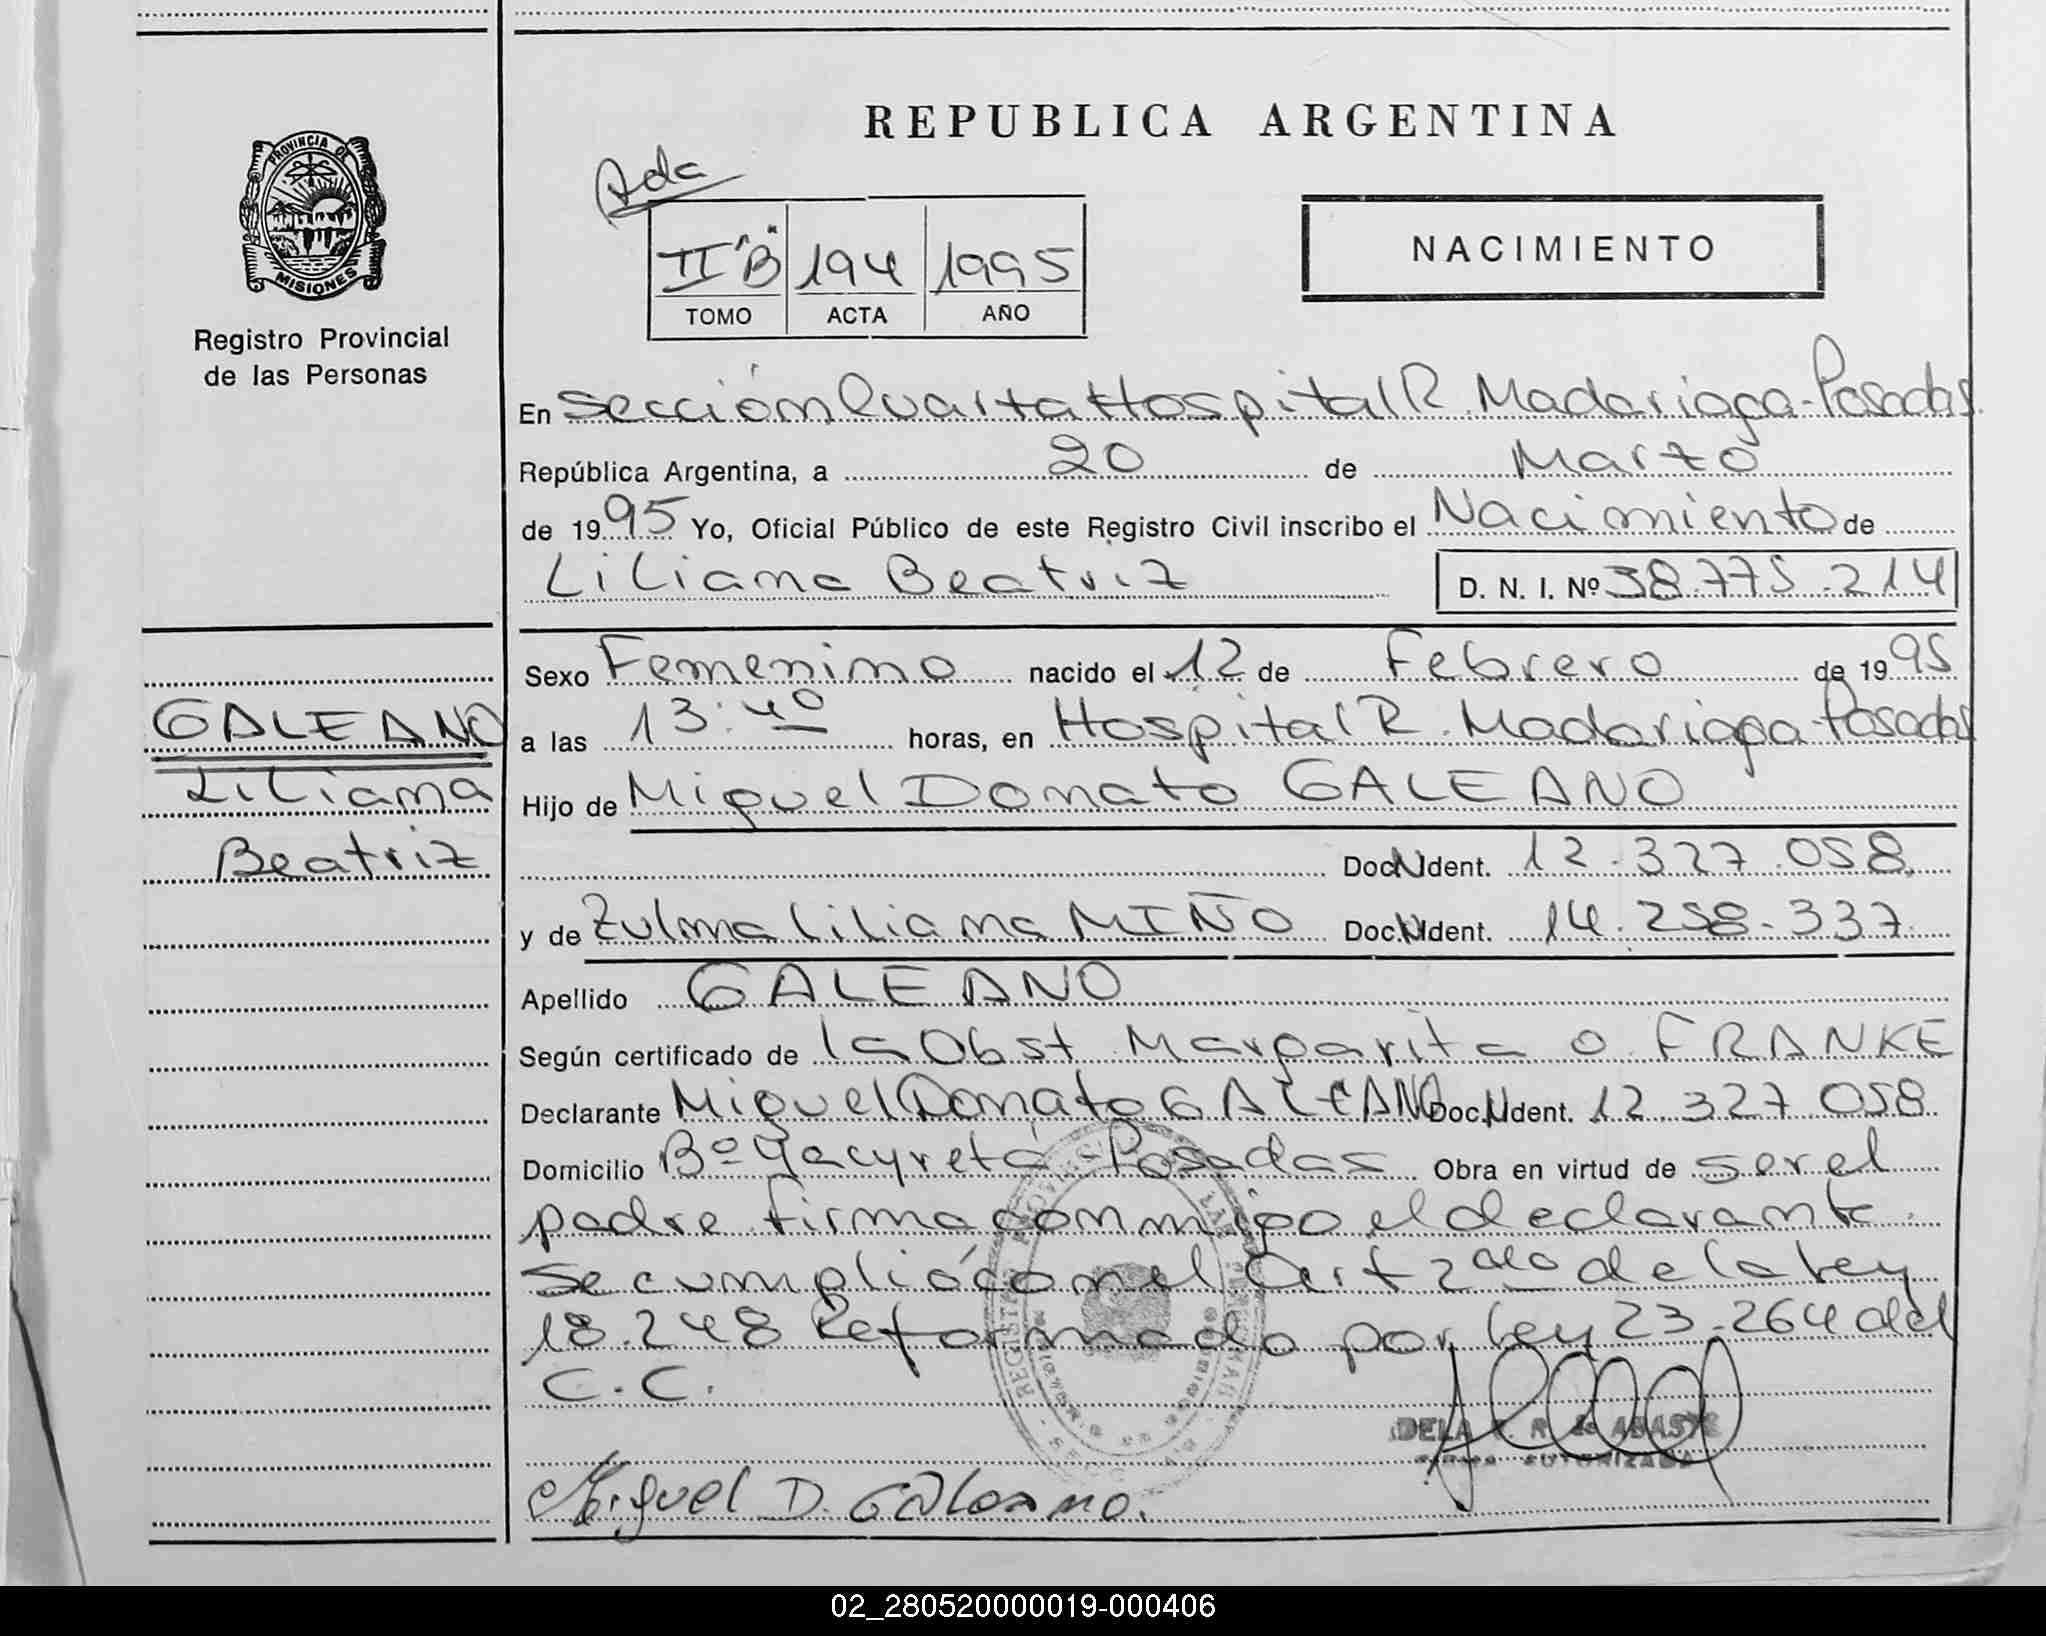 REPUBLICA ARGENTINA
PROVINCIA DE
MISIONES
Registro Provincial
de las Personas
Ada
II "B" 194 1995
TOMO ACTA AÑO
NACIMIENTO
En Sección Cuarta Hospital R. Madariaga - Posadas.
República Argentina, a 20 de Marzo
de 1995 Yo, Oficial Público de este Registro Civil inscribo el Nacimiento de
Liliana Beatriz D. N. I. Nº 38.775.214
Sexo Femenino nacido el 12 de Febrero de 1995
a las 13:40 horas, en Hospital R. Madariaga - Posadas
Hijo de Miguel Donato GALEANO
Doc. N Ident. 12.327.058
y de Zulma Liliana MIÑO Doc. N Ident. 14.258.337
Apellido GALEANO
Según certificado de la Obst Margarita O FRANKE
Declarante Miguel Donato GALEANO Doc. N Ident. 12.327.058
Domicilio Bº Yacyretá - Posadas Obra en virtud de ser el
padre firma conmigo el declarante.
Se cumplió con el Art 2do de la Ley
18.248 Reformado por Ley 23.264 del
C.C.
GALEANO
Liliana
Beatriz
DELA R. de
AUTORIZADA
Miguel D. Galeano.
02_280520000019-000406